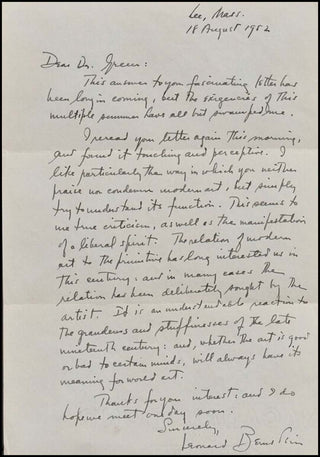 Lee, Mass.
18 August 1952
Dear Dr. Green:
This answer to your fascinating letter has
been long in coming, but the exigencies of this
multiple summer have all but swamped me.
I reread your letter again this morning,
and found it touching and perceptive. I
like particularly the way in which you neither
praise nor condemn modern art, but simply
try to understand its function. This seems to
me true criticism, as well as the manifestation
of a liberal spirit. The relation of modern
art to the primitive has long interested us in
this century: and in many cases the
relation has been deliberately sought by the
artist. It is an understandable reaction to
the grandeurs and stuffinesses of the late
nineteenth century: and, whether the art is good
or bad to certain minds, will always have its
meaning for world art.
Thanks for your interest: and I do
hope we meet one day soon.
Sincerely,
Leonard Bernstein